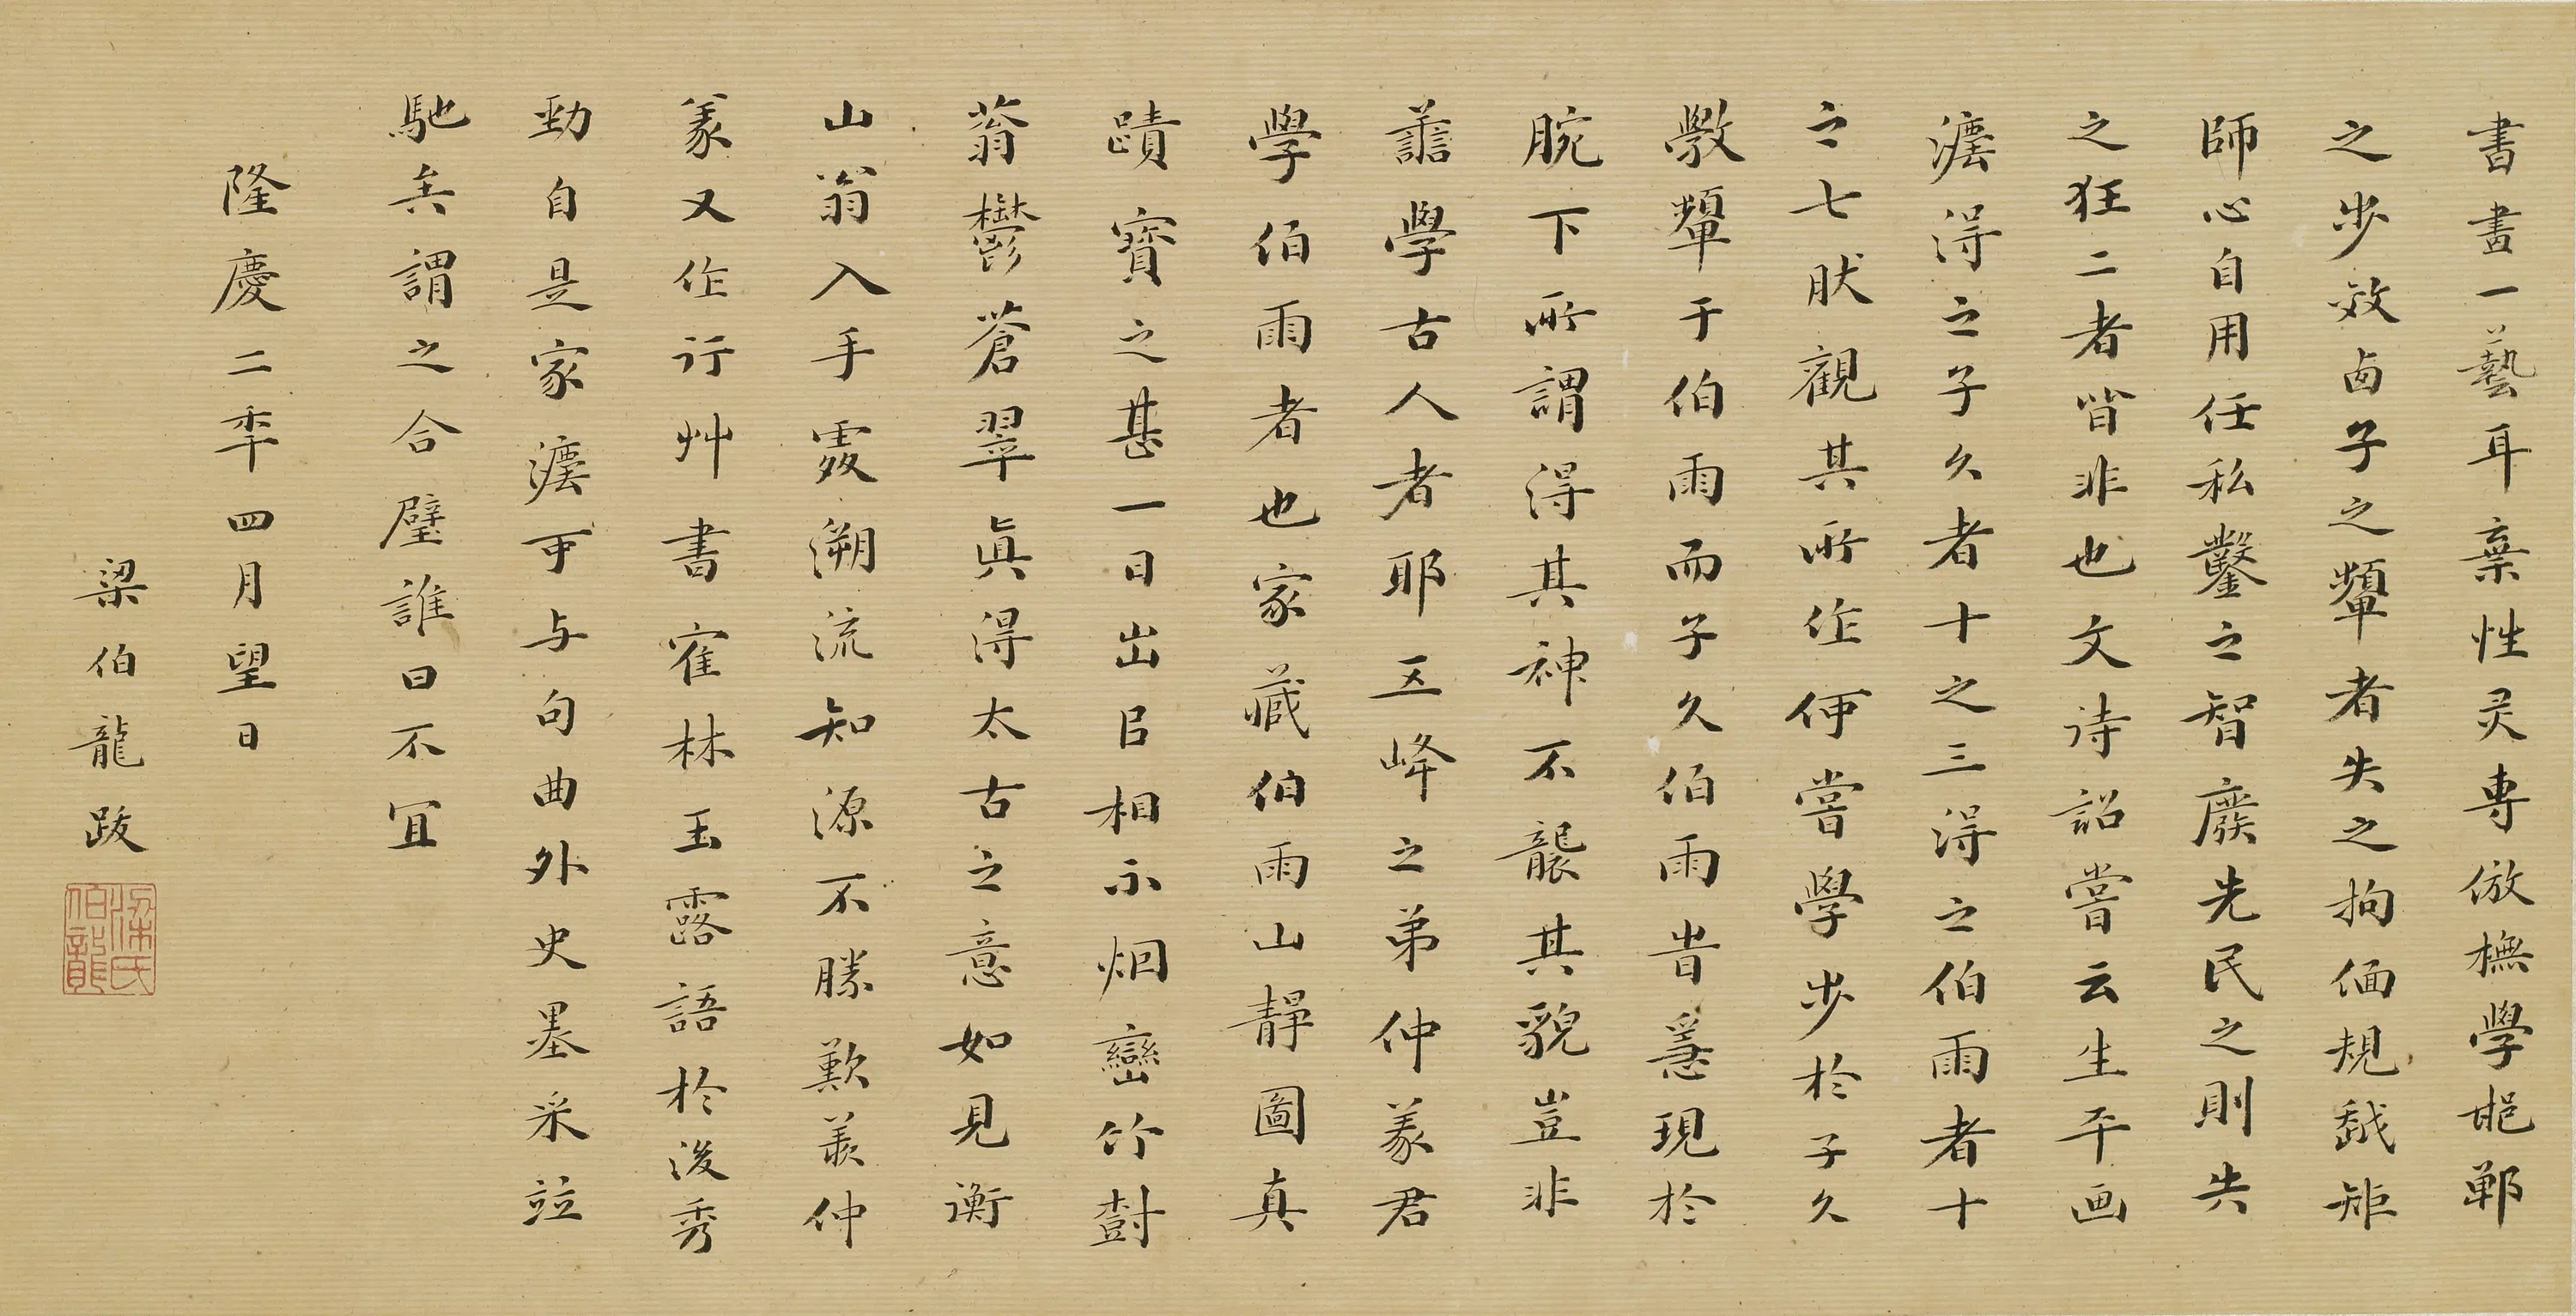 書畫一藝耳棄性灵專倣橅學邯鄲
之步效西子之顰者失之拘偭規越矩
師心自用任私鑿之智廢先民之則失
之狂二者皆非也文诗詔嘗云生平画
灋得之子久者十之三得之伯雨者十
之七肰觀其所作何嘗學步於子久
斆顰于伯雨而子久伯雨昔㥯現於
腕下所謂得其神不襲其貌豈非
善學古人者耶五峰之弟仲義君
學伯雨者也家藏伯雨山靜圖真
蹟寶之甚一日出㠯相示烟巒竹樹
蓊鬱蒼翠眞得太古之意如見衡
山翁入手處溯流知源不勝歎羨仲
義又作行艸書寉林玉露語於後秀
勁自是家灋可与句曲外史墨采竝
馳矣謂之合璧誰曰不宜
隆慶二秊四月望日
梁伯龍跋
梁氏伯龍